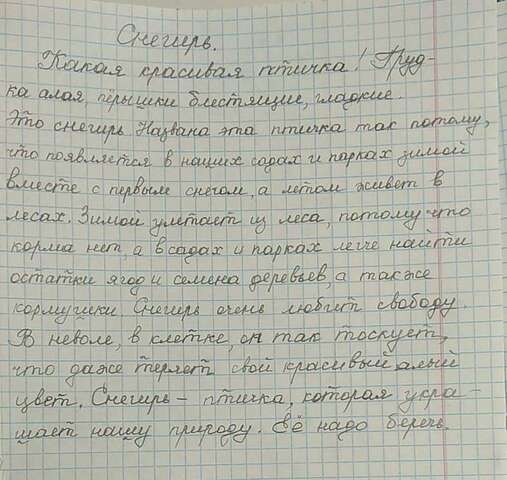 Снегирь.
Какая красивая птичка! Груд-
ка алая, пёрышки блестящие, гладкие.
Это снегирь. Названа эта птичка так потому,
что появляется в наших садах и парках зимой
вместе с первым снегом, а летом живет в
лесах. Зимой улетает из леса, потому что
корма нет, а в садах и парках легче найти
остатки ягод и семена деревьев, а также
кормушки. Снегирь очень любит свободу.
В неволе, в клетке, он так тоскует,
что даже теряет свой красивый алый
цвет. Снегирь - птичка, которая укра-
шает нашу природу. Её надо беречь.